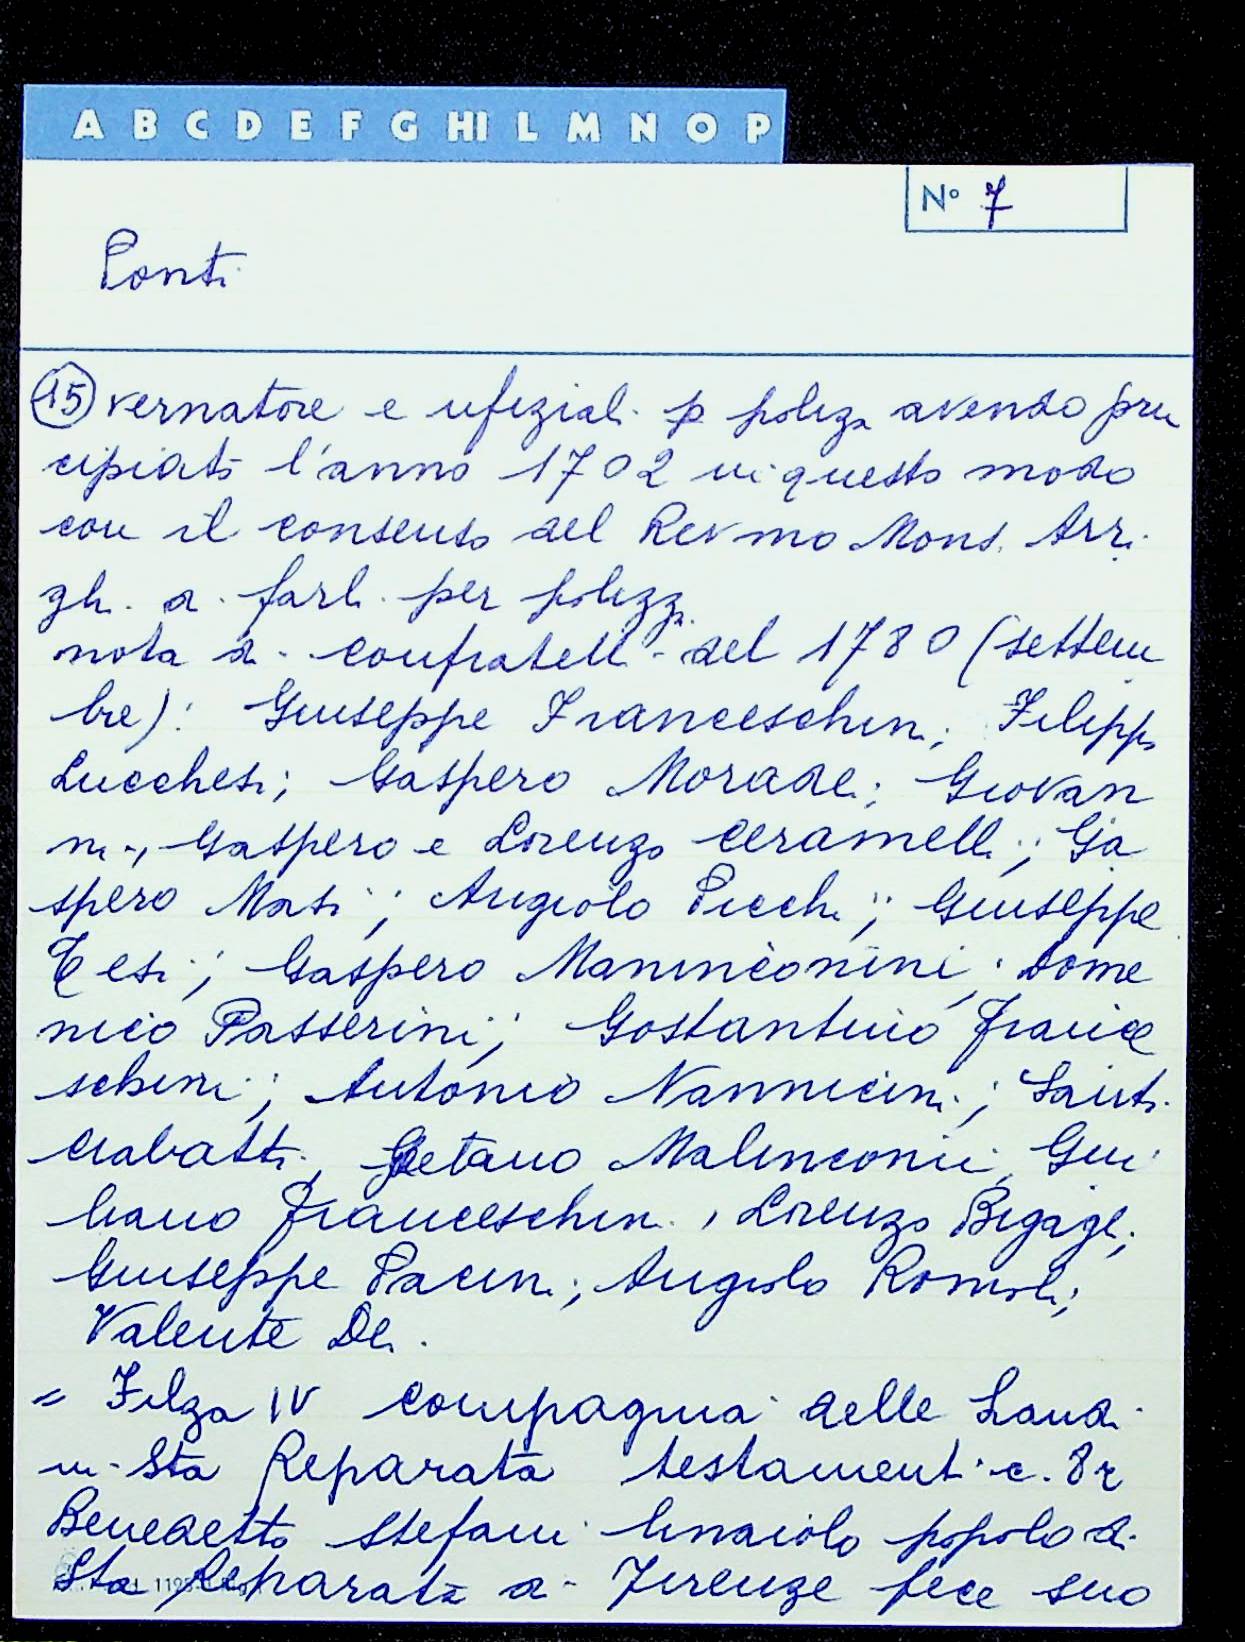 A B C D E F G HI L M N O P
N° 7
Ponti
15 vernatore e ufiziali p poliza avendo prin
cipiato l'anno 1702 in questo modo
con il consenso del Revmo Mons. Arri
ghi a farli per polizz
nota di confratelli del 1780 (settem
bre): Giuseppe Franceschini; Filippo
Lucchesi; Gaspero Moradei; Giovan
ni, Gaspero e Lorenzo Ceramelli; Ga
spero Masi; Angiolo Picchi; Giuseppe
Tesi; Gaspero Maninconini; Dome
nico Passerini; Gostantino France
schini; Antonio Nannicini; Santi
Ciabatti, Gaetano Malinconii, Giu
liano Franceschini, Lorenzo Begagli;
Giuseppe Pacini; Angiolo Romoli;
Valente Dei.
= Filza IV compagnia delle Laudi
in Sta Reparata testamenti c. 8r
Benedetto Stefani linaiolo popolo di
Sta Reparata di Firenze fece suo